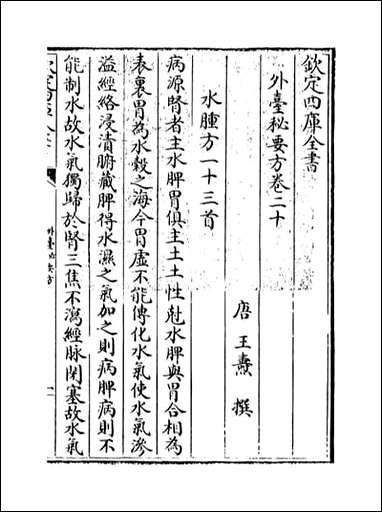 欽定四庫全書
外臺秘要方卷二十
唐 王燾 撰
水腫方一十三首
病源腎者主水脾胃俱主土土性尅水脾與胃合相為
表裏胃為水穀之海今胃虛不能傳化水氣使水氣滲
溢經絡浸漬腑藏脾得水濕之氣加之則病脾病則不
能制水故水氣獨歸於腎三焦不瀉經脉閉塞故水氣
外臺秘要方